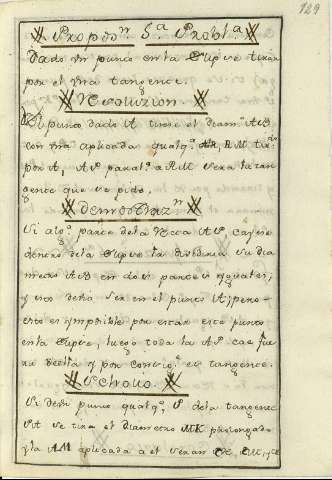 129
Propos.n 5.a Probl.a
Dado un punto en la Curva tirar
por el una tangente.
Resoluzion
Del punto dado A tirese el diam.o AB
con una aplicada qualq.a RM
por A, AP paral.a a RM sera la tan
gente que se pide.
Demostraz.n
Si alg.a parte de la Recta AP, cayese
dentro de la Curva la dividiria su dia
metro AB en dos partes yguales,
y esto devia ser en el punto A, pero
esto es ymposible por estar este punto
en la Curva, luego toda la AP cae fue
ra de ella y por consig.te es tangente.
Scholio
Si de un punto qualq.a P de la tangente
PA se tira el diametro MK prolongado
y la AM aplicada a el seran